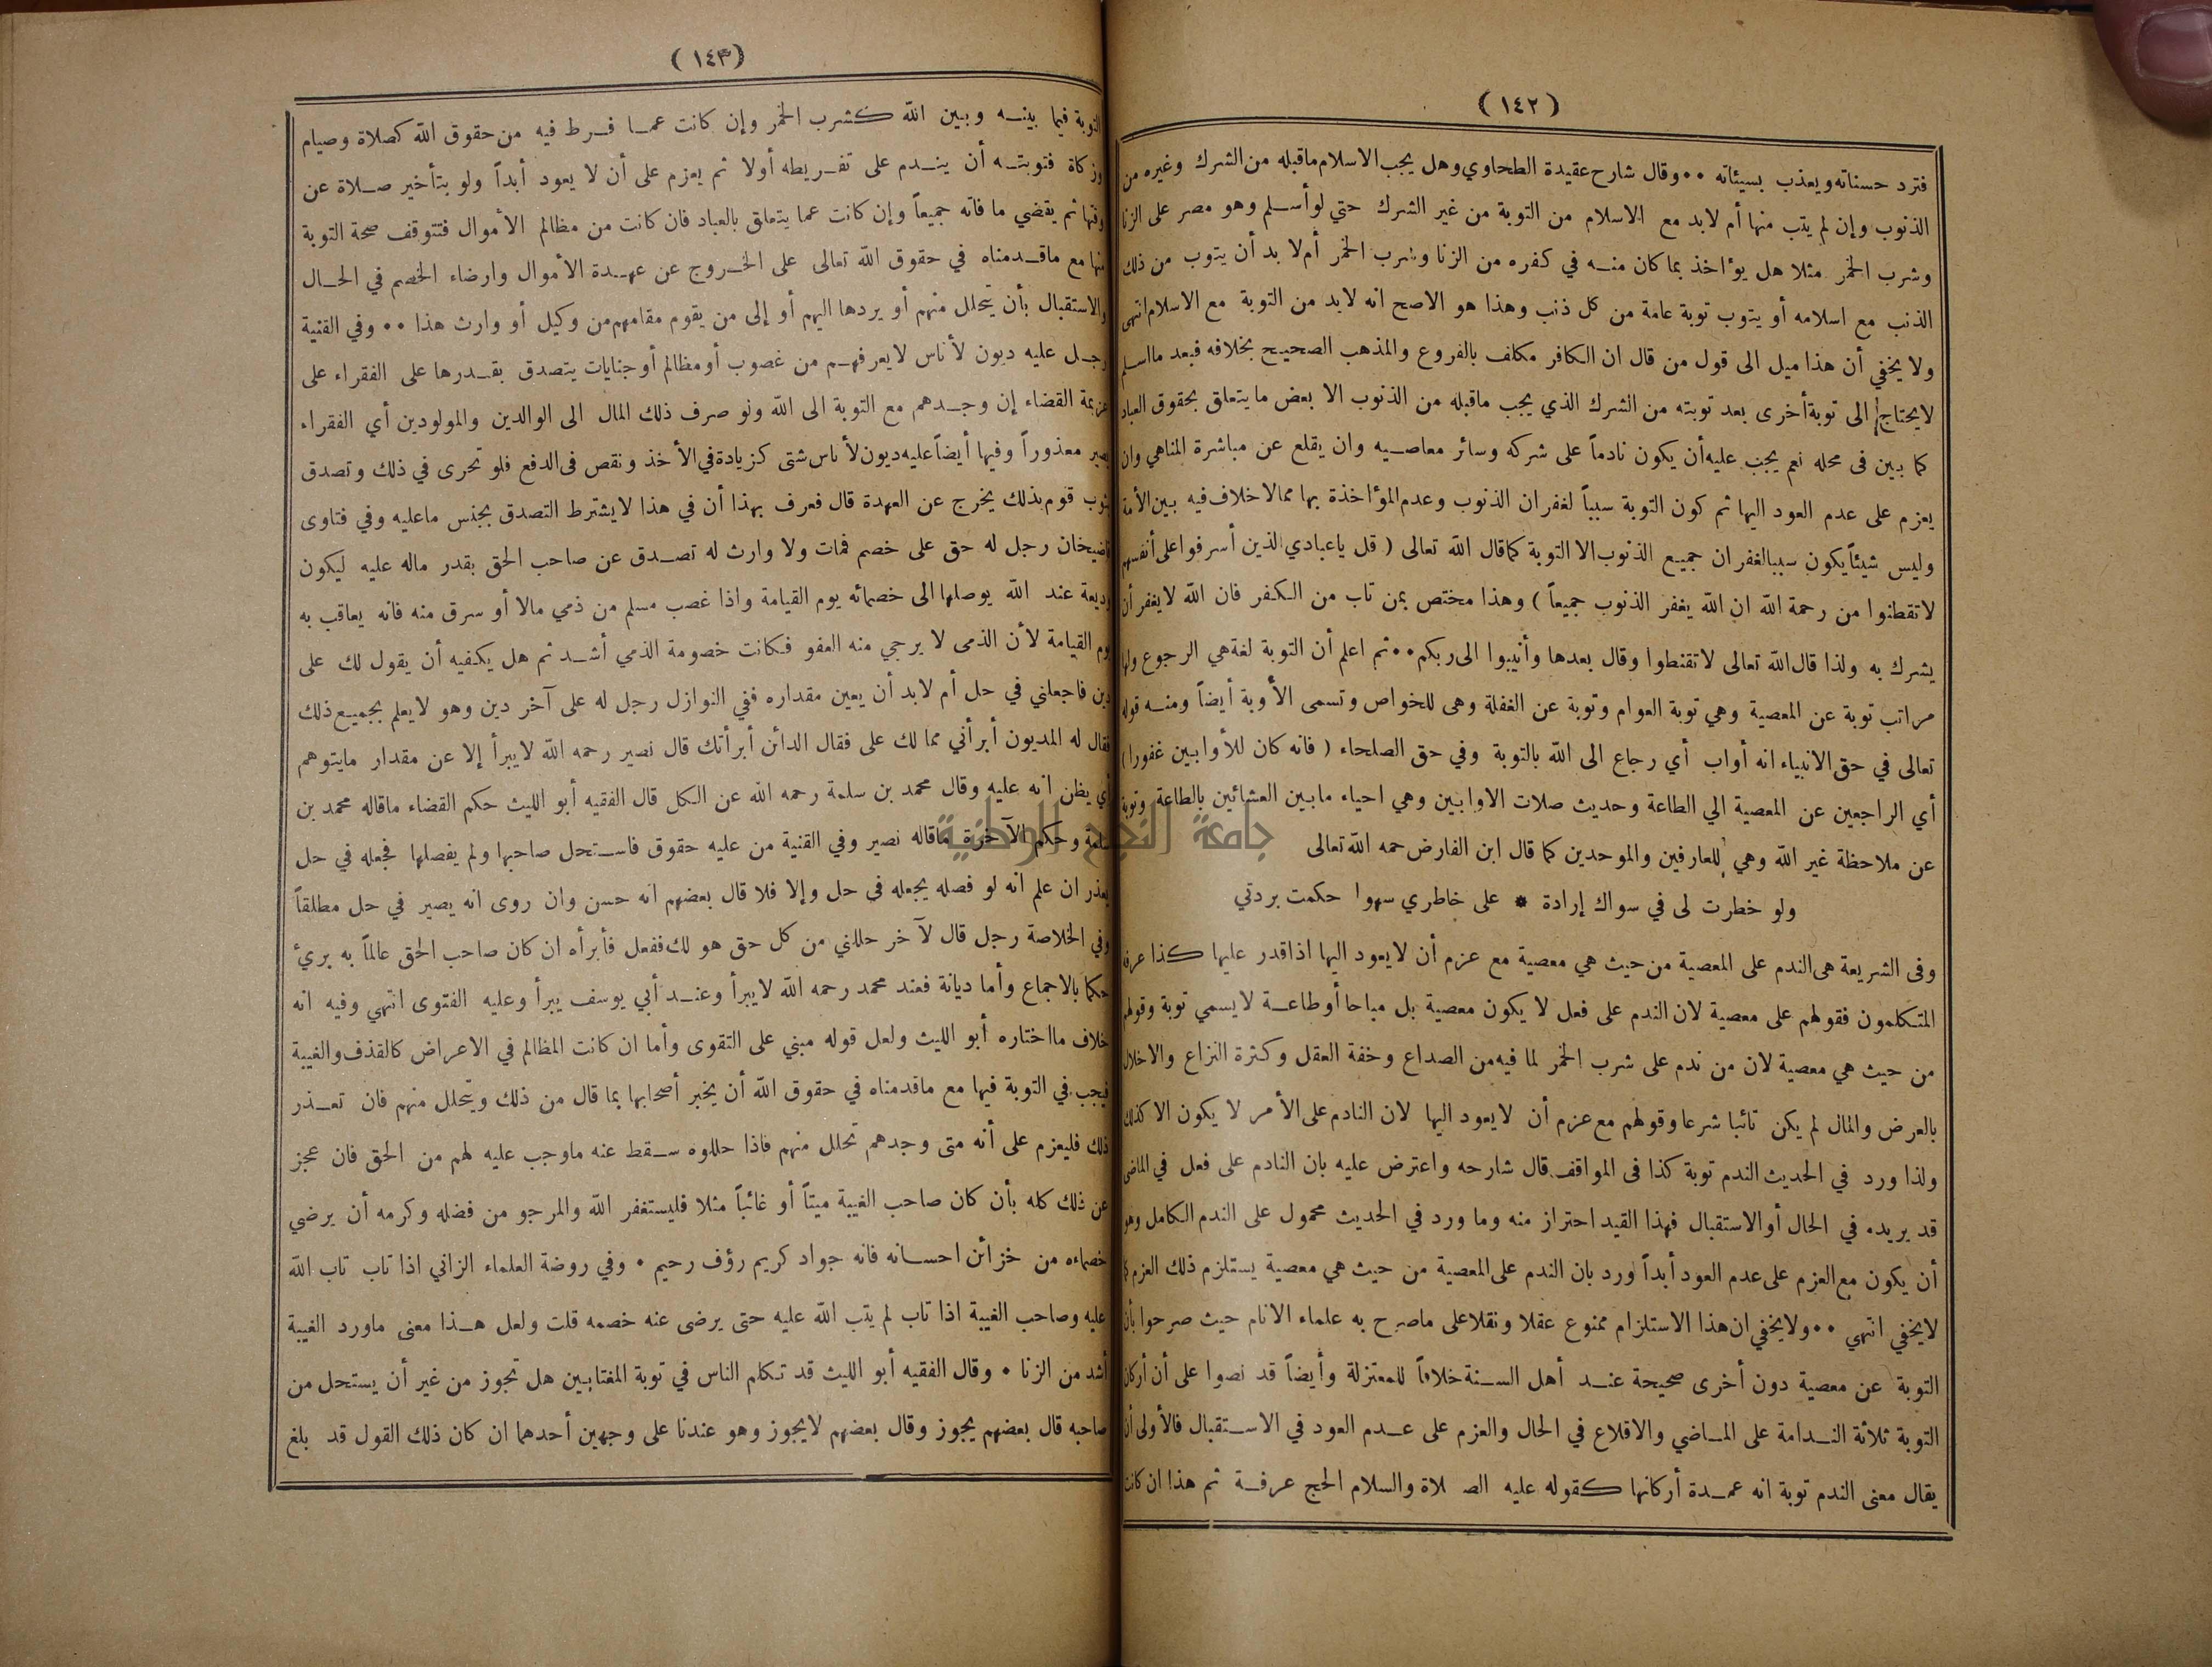 (١٤٢)
فترد حسناته ويعذب بسيئاته ٠٠ وقال شارح عقيدة الطحاوي وهل يجب الاسلام ماقبله من الشرك وغيره من
الذنوب وإن لم يتب منها أم لابد مع الاسلام من التوبة من غير الشرك حتي لوأسلم وهو مصر على الزنا
وشرب الخمر مثلا هل يؤاخذ بما كان منه في كفره من الزنا وشرب الخمر أم لا بد أن يتوب من ذلك
الذنب مع اسلامه أو يتوب توبة عامة من كل ذنب وهذا هو الاصح انه لابد من التوبة مع الاسلام انتهى
ولا يخفي أن هذا ميل الى قول من قال ان الكافر مكلف بالفروع والمذهب الصحيح بخلافه فبعد مااسلم
لايحتاج الى توبة أخرى بعد توبته من الشرك الذي يجب ماقبله من الذنوب الا بعض ما يتعلق بحقوق العباد
كما بين فى محله نعم يجب عليه أن يكون نادماً على شركه وسائر معاصيه وان يقلع عن مباشرة المناهي وان
يعزم على عدم العود اليها ثم كون التوبة سبباً لغفران الذنوب وعدم المؤاخذة بها ممالا خلاف فيه بين الأمة
وليس شيئاً يكون سببالغفران جميع الذنوب الا التوبة كماقال الله تعالى ( قل ياعبادي الذين أسرفوا على أنفسهم
لاتقطنوا من رحمة الله ان الله يغفر الذنوب جميعاً ) وهذا مختص بمن تاب من الكفر فان الله لايغفر أن
يشرك به ولذا قال الله تعالى لاتقنطوا وقال بعدها وأنيبوا الى ربكم ٠٠ ثم اعلم أن التوبة لغة هي الرجوع ولها
مراتب توبة عن المعصية وهي توبة العوام وتوبة عن الغفلة وهى للخواص وتسمى الأوبة أيضاً ومنه قوله
تعالى في حق الانبياء انه أواب أي رجاع الى الله بالتوبة وفي حق الصلحاء ( فانه كان للأوابين غفورا )
أي الراجعين عن المعصية الي الطاعة وحديث صلات الاوابين وهي احياء مابين العشائين بالطاعة وتوبة
عن ملاحظة غير الله وهي للعارفين والموحدين كما قال ابن الفارض حمه الله تعالى
ولو خطرت لى في سواك إرادة * على خاطري سهوا حكمت بردتي
وفى الشريعة هى الندم على المعصية من حيث هي معصية مع عزم أن لايعود اليها اذاقدر عليها كذا عرفه
المتكلمون فقولهم على معصية لان الندم على فعل لا يكون معصية بل مباحا أوطاعة لايسمي توبة وقولهم
من حيث هي معصية لان من ندم على شرب الخمر لما فيه من الصداع وخفة العقل وكثرة النزاع والاخلال
بالعرض والمال لم يكن تائبا شرعا وقولهم مع عزم أن لايعود اليها لان النادم على الأمر لا يكون الا كذلك
ولذا ورد في الحديث الندم توبة كذا فى المواقف قال شارحه واعترض عليه بان النادم على فعل في الماضى
قد يريده في الحال أوالاستقبال فهذا القيد احتراز منه وما ورد في الحديث محمول على الندم الكامل وهو
أن يكون مع العزم على عدم العود أبداً ورد بان الندم على المعصية من حيث هي معصية يستلزم ذلك العزم كما
لايخفي انتهي ٠٠ ولايخفي ان هذا الاستلزام ممنوع عقلا ونقلا على ماصرح به علماء الانام حيث صرحوا بأن
التوبة عن معصية دون أخرى صحيحة عند أهل السنة خلافاً للمعتزلة وأيضاً قد نصوا على أن أركان
التوبة ثلاثة الندامة على الماضي والاقلاع في الحال والعزم على عدم العود في الاستقبال فالأولى أن
يقال معنى الندم توبة انه عمدة أركانها كقوله عليه الصلاة والسلام الحج عرفة ثم هذا ان كانت
(١٤٣)
التوبة فيما بينه وبين الله كشرب الخمر وإن كانت عما فرط فيه من حقوق الله كصلاة وصيام
وزكاة فتوبته أن يندم على تفريطه أولا ثم يعزم على أن لا يعود أبداً ولو بتأخير صلاة عن
وقتها ثم يقضي ما فاته جميعاً وإن كانت عما يتعلق بالعباد فان كانت من مظالم الأموال فتتوقف صحة التوبة
منها مع ماقدمناه في حقوق الله تعالى على الخروج عن عهدة الأموال وارضاء الخصم في الحال
والاستقبال بأن يتحلل منهم أو يردها اليهم أو إلى من يقوم مقامهم من وكيل أو وارث هذا ٠٠ وفي القنية
رجل عليه ديون لأناس لايعرفهم من غصوب أومظالم أوجنايات يتصدق بقدرها على الفقراء على
عزيمة القضاء إن وجدهم مع التوبة الى الله ونو صرف ذلك المال الى الوالدين والمولودين أي الفقراء
يصير معذوراً وفيها أيضاً عليه ديون لأناس شتى كزيادة في الأخذ ونقص فى الدفع فلو تحرى في ذلك وتصدق
بثوب قوم بذلك يخرج عن العهدة قال فعرف بهذا أن في هذا لايشترط التصدق بجنس ماعليه وفي فتاوى
قاضيخان رجل له حق على خصم فمات ولا وارث له تصدق عن صاحب الحق بقدر ماله عليه ليكون
وديعة عند الله يوصلها الى خصمائه يوم القيامة واذا غصب مسلم من ذمي مالا أو سرق منه فانه يعاقب به
يوم القيامة لأن الذمى لا يرجي منه العفو فكانت خصومة الذمي أشد ثم هل يكفيه أن يقول لك على
دين فاجعلني في حل أم لابد أن يعين مقداره ففي النوازل رجل له على آخر دين وهو لايعلم بجميع ذلك
فقال له المديون أبرأني مما لك على فقال الدائن أبرأتك قال نصير رحمه الله لايبرأ إلا عن مقدار مايتوهم
أي يظن انه عليه وقال محمد بن سلمة رحمه الله عن الكل قال الفقيه أبو الليث حكم القضاء ماقاله محمد بن
سلمة وحكم الآخرة ماقاله نصير وفي القنية من عليه حقوق فاستحل صاحبها ولم يفصلها فجعله في حل
يعذر ان علم انه لو فصله يجعله فى حل وإلا فلا قال بعضهم انه حسن وان روى انه يصير في حل مطلقاً
وفي الخلاصة رجل قال لآخر حللني من كل حق هو لك ففعل فأبرأه ان كان صاحب الحق عالماً به برئ
حكما بالاجماع وأما ديانة فعند محمد رحمه الله لايبرأ وعند أبي يوسف يبرأ وعليه الفتوى انتهي وفيه انه
خلاف مااختاره أبو الليث ولعل قوله مبني على التقوى وأما ان كانت المظالم في الاعراض كالقذف والغيبة
فيجب في التوبة فيها مع ماقدمناه في حقوق الله أن يخبر أصحابها بما قال من ذلك ويتحلل منهم فان تعذر
ذلك فليعزم على أنه متى وجدهم تحلل منهم فاذا حللوه سقط عنه ماوجب عليه لهم من الحق فان عجز
عن ذلك كله بأن كان صاحب الغيبة ميتاً أو غائباً مثلا فليستغفر الله والمرجو من فضله وكرمه أن يرضي
خصماءه من خزائن احسانه فانه جواد كريم رؤف رحيم ٠ وفي روضة العلماء الزاني اذا تاب تاب الله
عليه وصاحب الغيبة اذا تاب لم يتب الله عليه حتى يرضى عنه خصمه قلت ولعل هذا معنى ماورد الغيبة
أشد من الزنا ٠ وقال الفقيه أبو الليث قد تكلم الناس في توبة المغتابين هل تجوز من غير أن يستحل من
صاحبه قال بعضهم يجوز وقال بعضهم لايجوز وهو عندنا على وجهين أحدهما ان كان ذلك القول قد بلغ
جامعة النجاح الوطنية